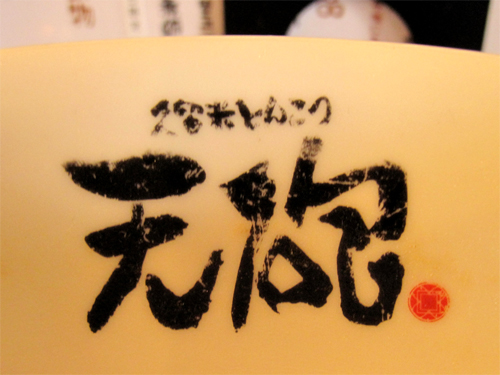 久留米とんこつ
天砲